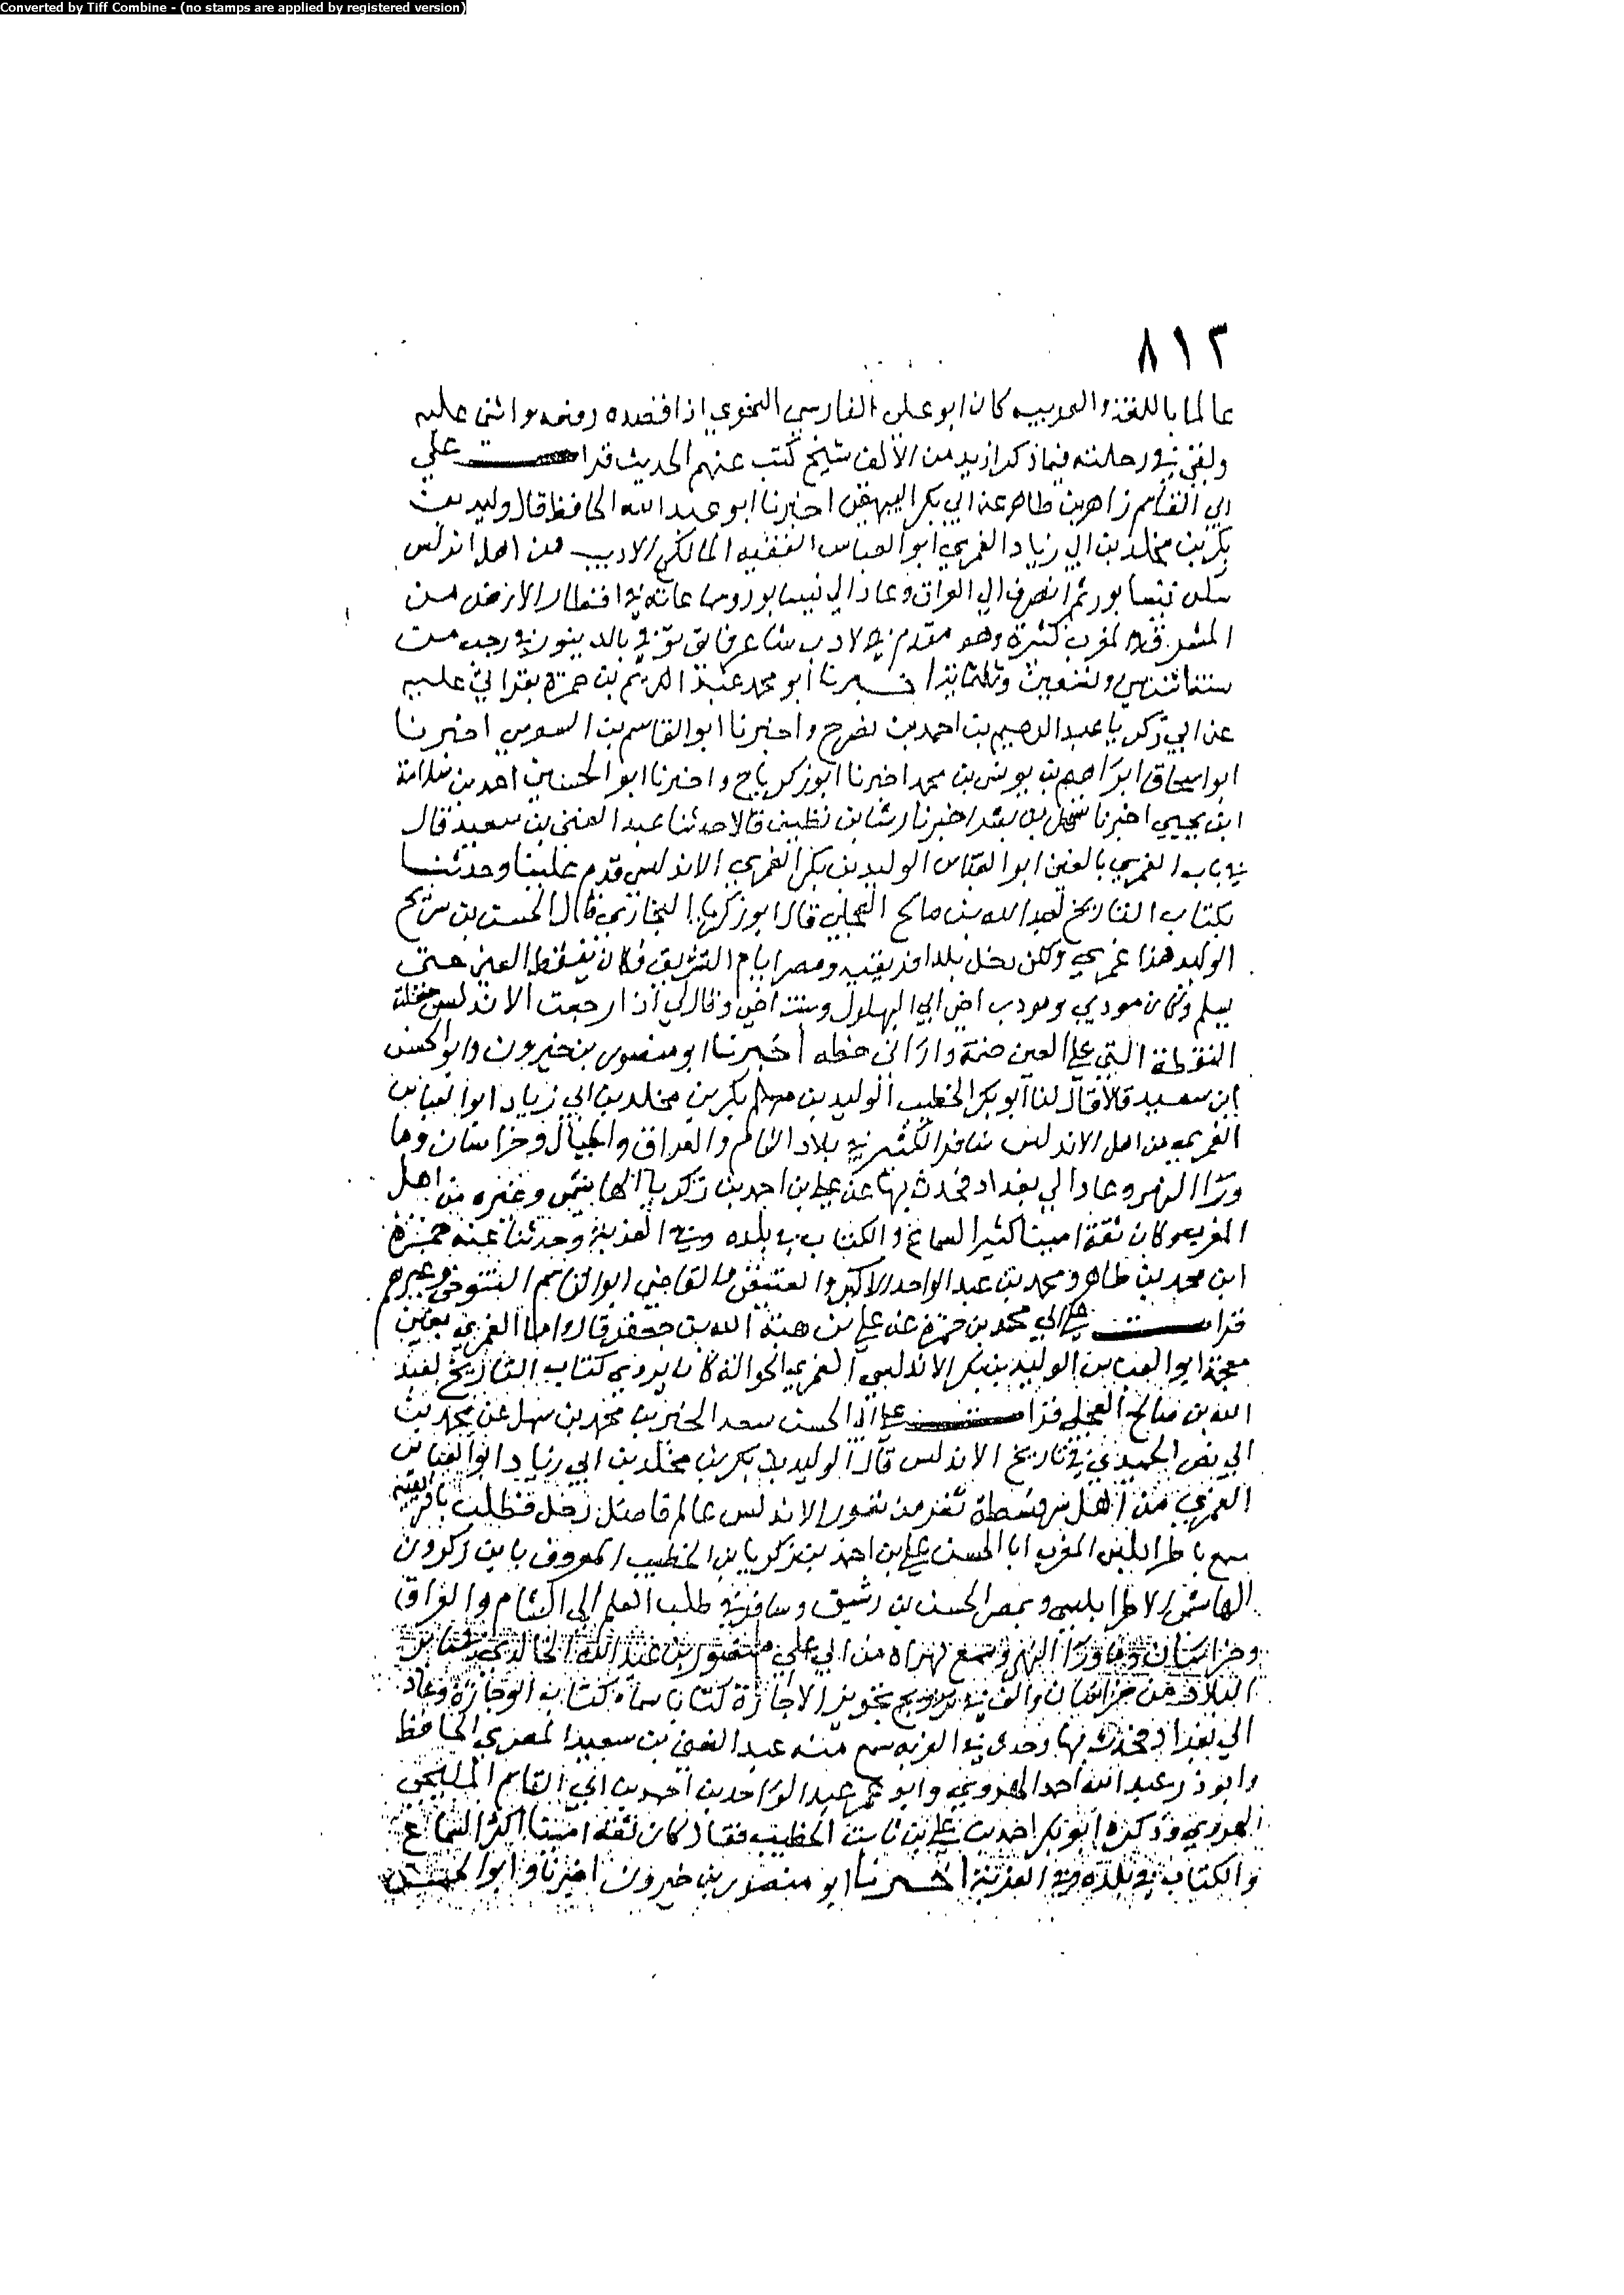 Converted by Tiff Combine - (no stamps are applied by registered version)
٨١٢
عالما باللغة والعربيه كان ابو على الفارسي النحوي اذا قصده رفعه واثنى عليه
ولقى في رحلته فيما ذكر ازيد من الألف شيخ كتب عنهم الحديث قرات علي
ابي القاسم زاهر بن طاهر عن ابي بكر البيهقي اخبرنا ابو عبد الله الحافظ قال وليد بن
بكر بن مخلد بن ابي زياد الغمري ابو العباس الفقيه المالكي الاديب من اهل اندلس
سكن نيسابور ثم انصرف الي العراق وعاد الي نيسابور وسماعاته في اقطار الارض من
المشرق والمغرب كثيرة وهو مقدم في الادب شاعر فايق توفي بالدينور في رجب من
سنة اثنتين وتسعين وثلثماية اخبرنا ابو محمد عبد الكريم بن حمزة بقراتي عليه
عن ابي زكريا عبد الرحيم بن احمد بن نصر ح واخبرنا ابو القاسم بن السوسي اخبرنا
ابو اسحاق ابراهيم بن يونس بن محمد اخبرنا ابو زكريا ح واخبرنا ابو الحسين احمد بن سلامة
ابن يحيي اخبرنا سهل بن بشر اخبرنا رشا بن نظيف قالا حدثنا عبد الغني بن سعيد قال
في باب الغمري بالغين ابو العباس الوليد بن بكر الغمري الاندلسي قدم علينا وحدثنا
بكتاب التاريخ لعبد الله بن صالح العجلي قال ابو زكريا البخاري قال الحسن بن شريح
الوليد هذا عمري ولكن دخل بلد افريقيه ومصر ايام التشريق فكان ينقط العين حتى
يسلم وكان مودبي ومودب اخي ابي البهلول وقال لي اذا رجعت الاندلس جعلت
النقطة التي علي العين ضمة وارانى خطه اخبرنا ابو منصور بن خيرون وابو الحسن
ابن سعيد قالا قال لنا ابو بكر الخطيب الوليد بن بكر بن مخلد بن ابي زياد ابو العباس
الغمري من اهل الاندلس سافر الكثير في بلاد الشام والعراق والجبال وخراسان وما
ورا النهر وعاد الي بغداد فحدث بها عن علي بن احمد بن زكريا الهاشمي وغيره من اهل
المغرب وكان ثقة امينا كثير السماع والكتاب في بلده وفي الغربة وحدثنا عنه حمزة
ابن محمد بن طاهر ومحمد بن عبد الواحد الاكبر والعتيقي والقاضي ابو القاسم التنوخي وغيرهم
قرات علي ابي محمد بن حمزة عن علي بن هبة الله بن جعفر قال واما الغمري بغين
معجمة ابو العباس الوليد بن بكر الاندلسي الغمري الجوالة كان يروي كتاب التاريخ لعبد
الله بن صالح العجلي قرات علي ابي الحسن سعد الخير بن محمد بن سهل عن محمد بن
ابي نصر الحميدي في تاريخ الاندلس قال الوليد بن بكر بن مخلد بن ابي زياد ابو العباس
الغمري من اهل سرقسطة ثغر من ثغور الاندلس عالم فاضل رحل فطلب بافريقية
سمع باطرابلس المغرب ابا الحسن علي بن احمد بن زكريا بن الخطيب المعروف بابن زكرون
الهاشمي الاطرابلسي وبمصر الحسن بن رشيق وسافر في طلب العلم الى الشام والعراق
وخراسان وما ورا النهر وسمع بهراه من ابي علي منصور بن عبد الله الخالدي
البلاد من خراسان والف في تجويز الاجازة كتابا سماه كتاب الوجازة وعاد
الي بغداد فحدث بها وحدث في الغربه سمع منه عبد الغني بن سعيد المصري الحافظ
وابو ذر عبد الله احمد الهروي وابو عمر عبد الواحد بن احمد بن ابي القاسم المليحي
الهروي وذكره ابو بكر احمد بن علي بن ثابت الخطيب فقال كان ثقة امينا اكثر السماع
والكتاب في بلده وفي الغربة اخبرنا ابو منصور بن خيرون اخبرنا وابو الحسن